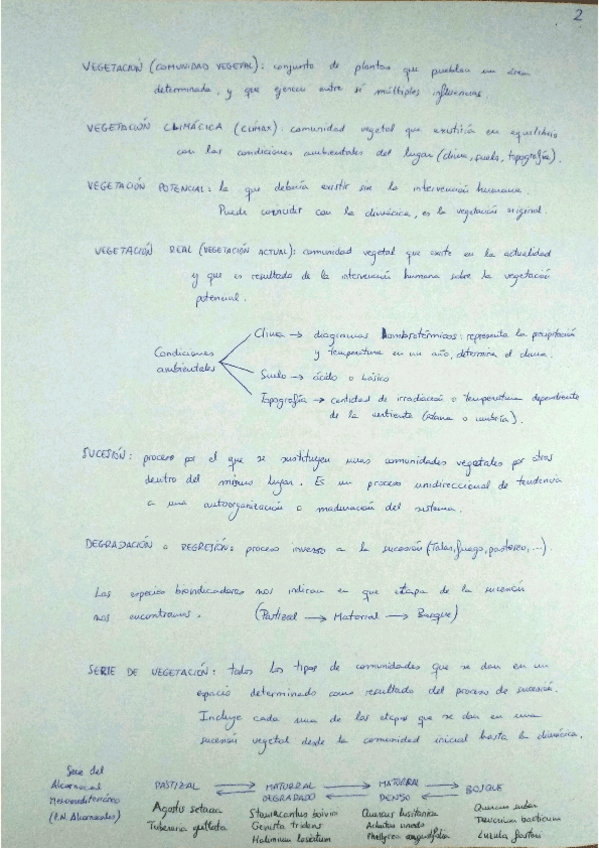 2
VEGETACIÓN (COMUNIDAD VEGETAL): conjunto de plantas que pueblan un área
determinada, y que ejercen entre sí múltiples influencias.
VEGETACIÓN CLIMÁCICA (CLÍMAX): comunidad vegetal que existiría en equilibrio
con las condiciones ambientales del lugar (clima, suelo, topografía).
VEGETACIÓN POTENCIAL: la que debería existir sin la intervención humana.
Puede coincidir con la climácica, es la vegetación original.
VEGETACIÓN REAL (VEGETACIÓN ACTUAL): comunidad vegetal que existe en la actualidad
y que es resultado de la intervención humana sobre la vegetación
potencial.
Clima → diagramas ombrotérmicos: representa la precipitación
y temperatura en un año, determina el clima.
Condiciones
ambientales
Suelo → ácido o básico
Topografía → cantidad de irradiación o temperatura dependiente
de la vertiente (solana o umbría).
SUCESIÓN: proceso por el que se sustituyen unas comunidades vegetales por otras
dentro del mismo lugar. Es un proceso unidireccional de tendencia
a una autoorganización o maduración del sistema.
DEGRADACIÓN o REGRESIÓN: proceso inverso a la sucesión (talas, fuego, pastoreo, ...)
Las especies bioindicadoras nos indican en que etapa de la sucesión
nos encontramos. (Pastizal → Matorral → Bosque)
SERIE DE VEGETACIÓN: todos los tipos de comunidades que se dan en un
espacio determinado como resultado del proceso de sucesión.
Incluye cada una de las etapas que se dan en una
sucesión vegetal desde la comunidad inicial hasta la climácica.
Serie del
Alcornocal
Mesomediterráneo
(P.N. Alcornocales)
PASTIZAL ⇄ MATORRAL DEGRADADO ⇄ MATORRAL DENSO ⇄ BOSQUE
Agostis setacea Stauracantus boivii Quercus lusitanica Quercus suber
Tuberaria guttata Genista tridens Arbutus unedo Teucrium
Halimium Phillyrea angustifolia Luzula